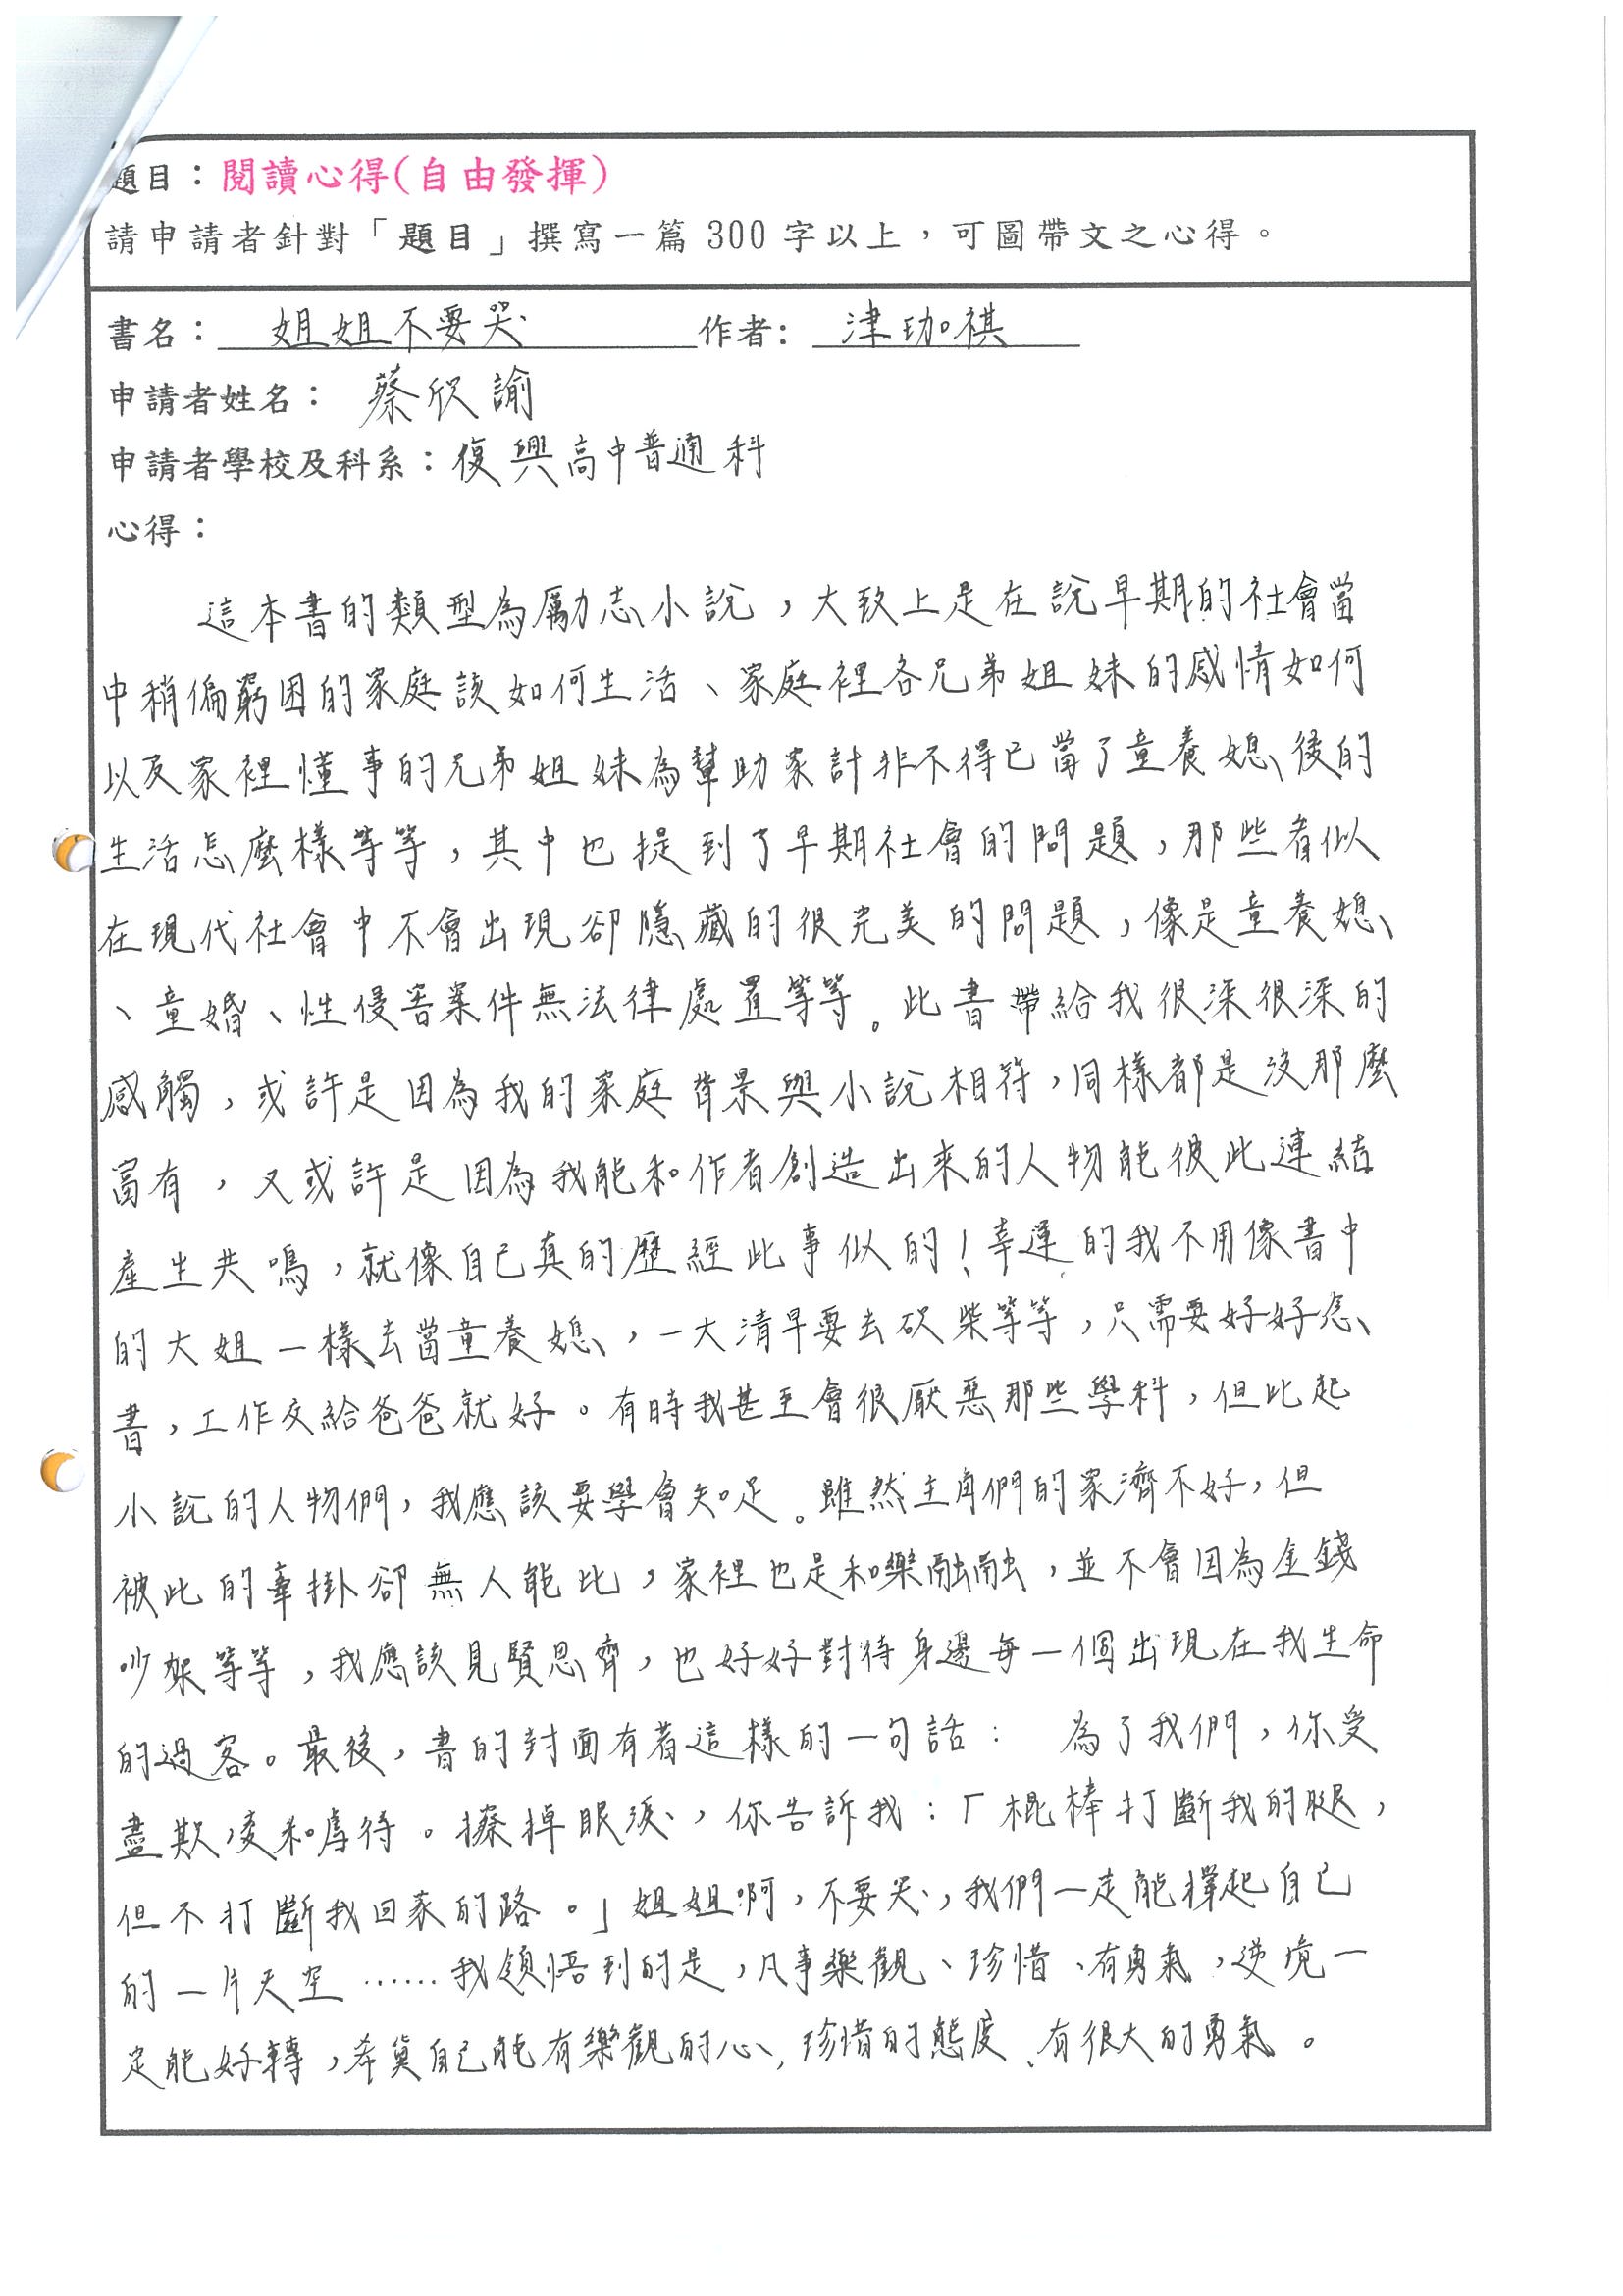 題目：閱讀心得(自由發揮)
請申請者針對「題目」撰寫一篇 300 字以上，可圖帶文之心得。
書名：姐姐不要哭 作者: 津珈祺
申請者姓名：蔡欣諭
申請者學校及科系：復興高中普通科
心得：
這本書的類型為勵志小說，大致上是在說早期的社會當
中稍偏窮困的家庭該如何生活、家庭裡各兄弟姐妹的感情如何
以及家裡懂事的兄弟姐妹為幫助家計非不得已當了童養媳後的
生活怎麼樣等等，其中也提到了早期社會的問題，那些看似
在現代社會中不會出現卻隱藏的很完美的問題，像是童養媳
、童婚、性侵害案件無法律處置等等。此書帶給我很深很深的
感觸，或許是因為我的家庭背景與小說相符，同樣都是沒那麼
富有，又或許是因為我能和作者創造出來的人物能彼此連結
產生共鳴，就像自己真的歷經此事似的！幸運的我不用像書中
的大姐一樣去當童養媳，一大清早要去砍柴等等，只需要好好念
書，工作交給爸爸就好。有時我甚至會很厭惡那些學科，但比起
小說的人物們，我應該要學會知足。雖然主角們的家濟不好，但
彼此的牽掛卻無人能比，家裡也是和樂融融，並不會因為金錢
吵架等等，我應該見賢思齊，也好好對待身邊每一個出現在我生命
的過客。最後，書的封面有著這樣的一句話： 為了我們，你受
盡欺凌和虐待。擦掉眼淚，你告訴我：「棍棒打斷我的腿，
但不打斷我回家的路。」姐姐啊，不要哭，我們一定能撐起自己
的一片天空……我領悟到的是，凡事樂觀、珍惜、有勇氣，逆境一
定能好轉，希冀自己能有樂觀的心、珍惜的態度、有很大的勇氣。